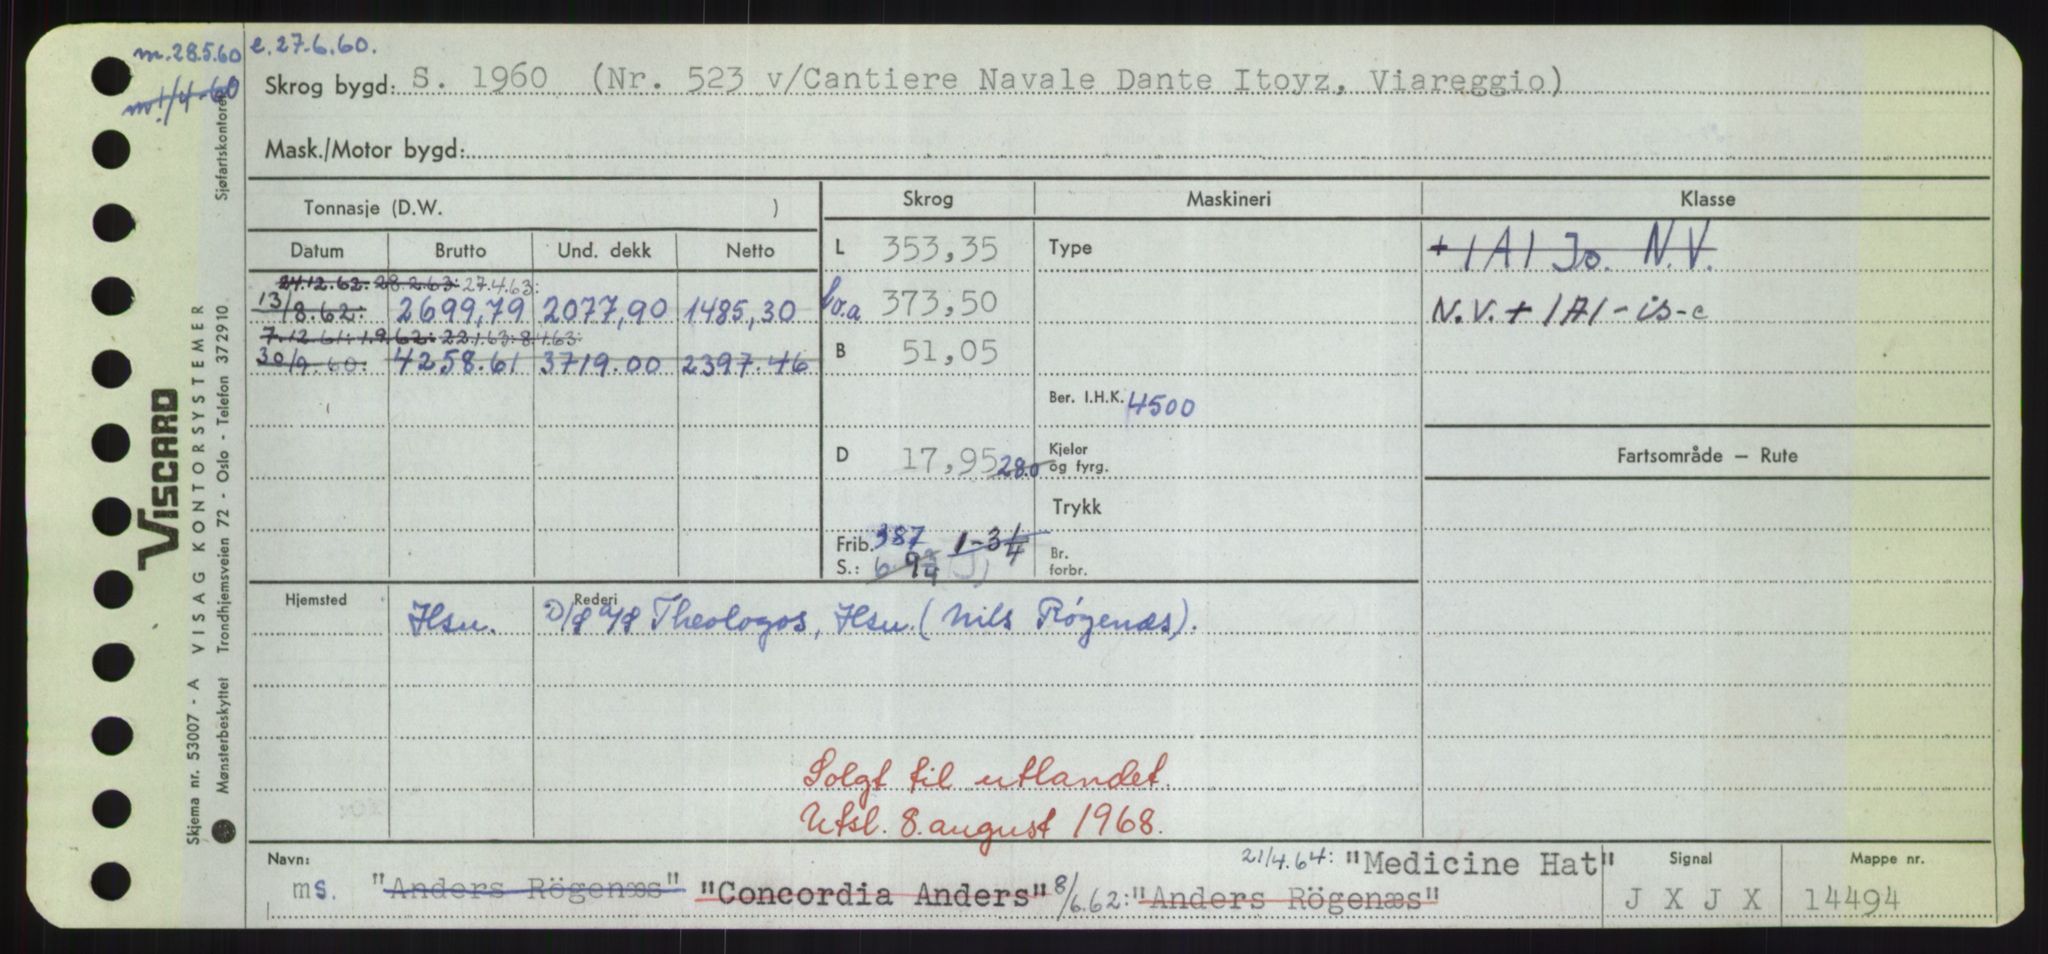 m. 28.5.60 e. 27.6.60.
m 1/4-60
Skrog bygd: S. 1960 (Nr. 523 v/Cantiere Navale Dante Itoyz, Viareggio)
Mask./Motor bygd:
Tonnasje (D.W. )
Skrog Maskineri Klasse
Datum Brutto Und. dekk Netto
L 353,35 Type +1A1 N.V.
24.12.62: 28.2.63: 27.4.63:
13/8.62: 2699,79 2077,90 1485,30 br.a 373,50 N.V. + 1A1 - is-c
7.12.61: 1.9.62: 22.1.63: 8.4.63:
30/9.60: 4258.61 3719.00 2397.46 B 51,05
Ber. I.H.K. 4500
D 17,95 28.0 Kjeler og fyrg.
Fartsområde – Rute
Trykk
Frib. 387 1-3 1/4
S.: 6 9 3/4 Br. forbr.
Hjemsted Rederi
Hsu. D/S A/S Theologos, Hsu. (Nils Røgenæs).
Solgt til utlandet.
Utsl. 8. august 1968.
Navn: 21/4.64: "Medicine Hat" Signal Mappe nr.
ms. "Anders Rögenæs" "Concordia Anders" 8/6.62: "Anders Rögenæs" J X J X 14494
Sjøfartskontoret
VISCARD
VISAG KONTORSYSTEMER
Trondhjemsveien 72 - Oslo - Telefon 372910
Skjema nr. 53007 - A
Mønsterbeskyttet